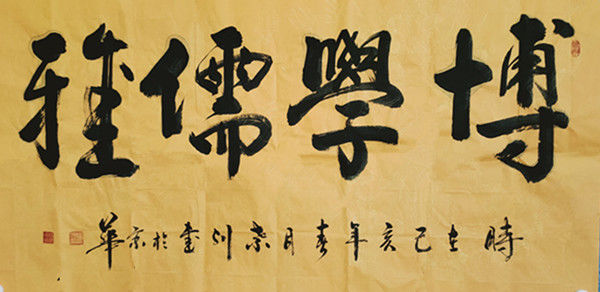 博學儒雅
時在己亥年春月川書於京華